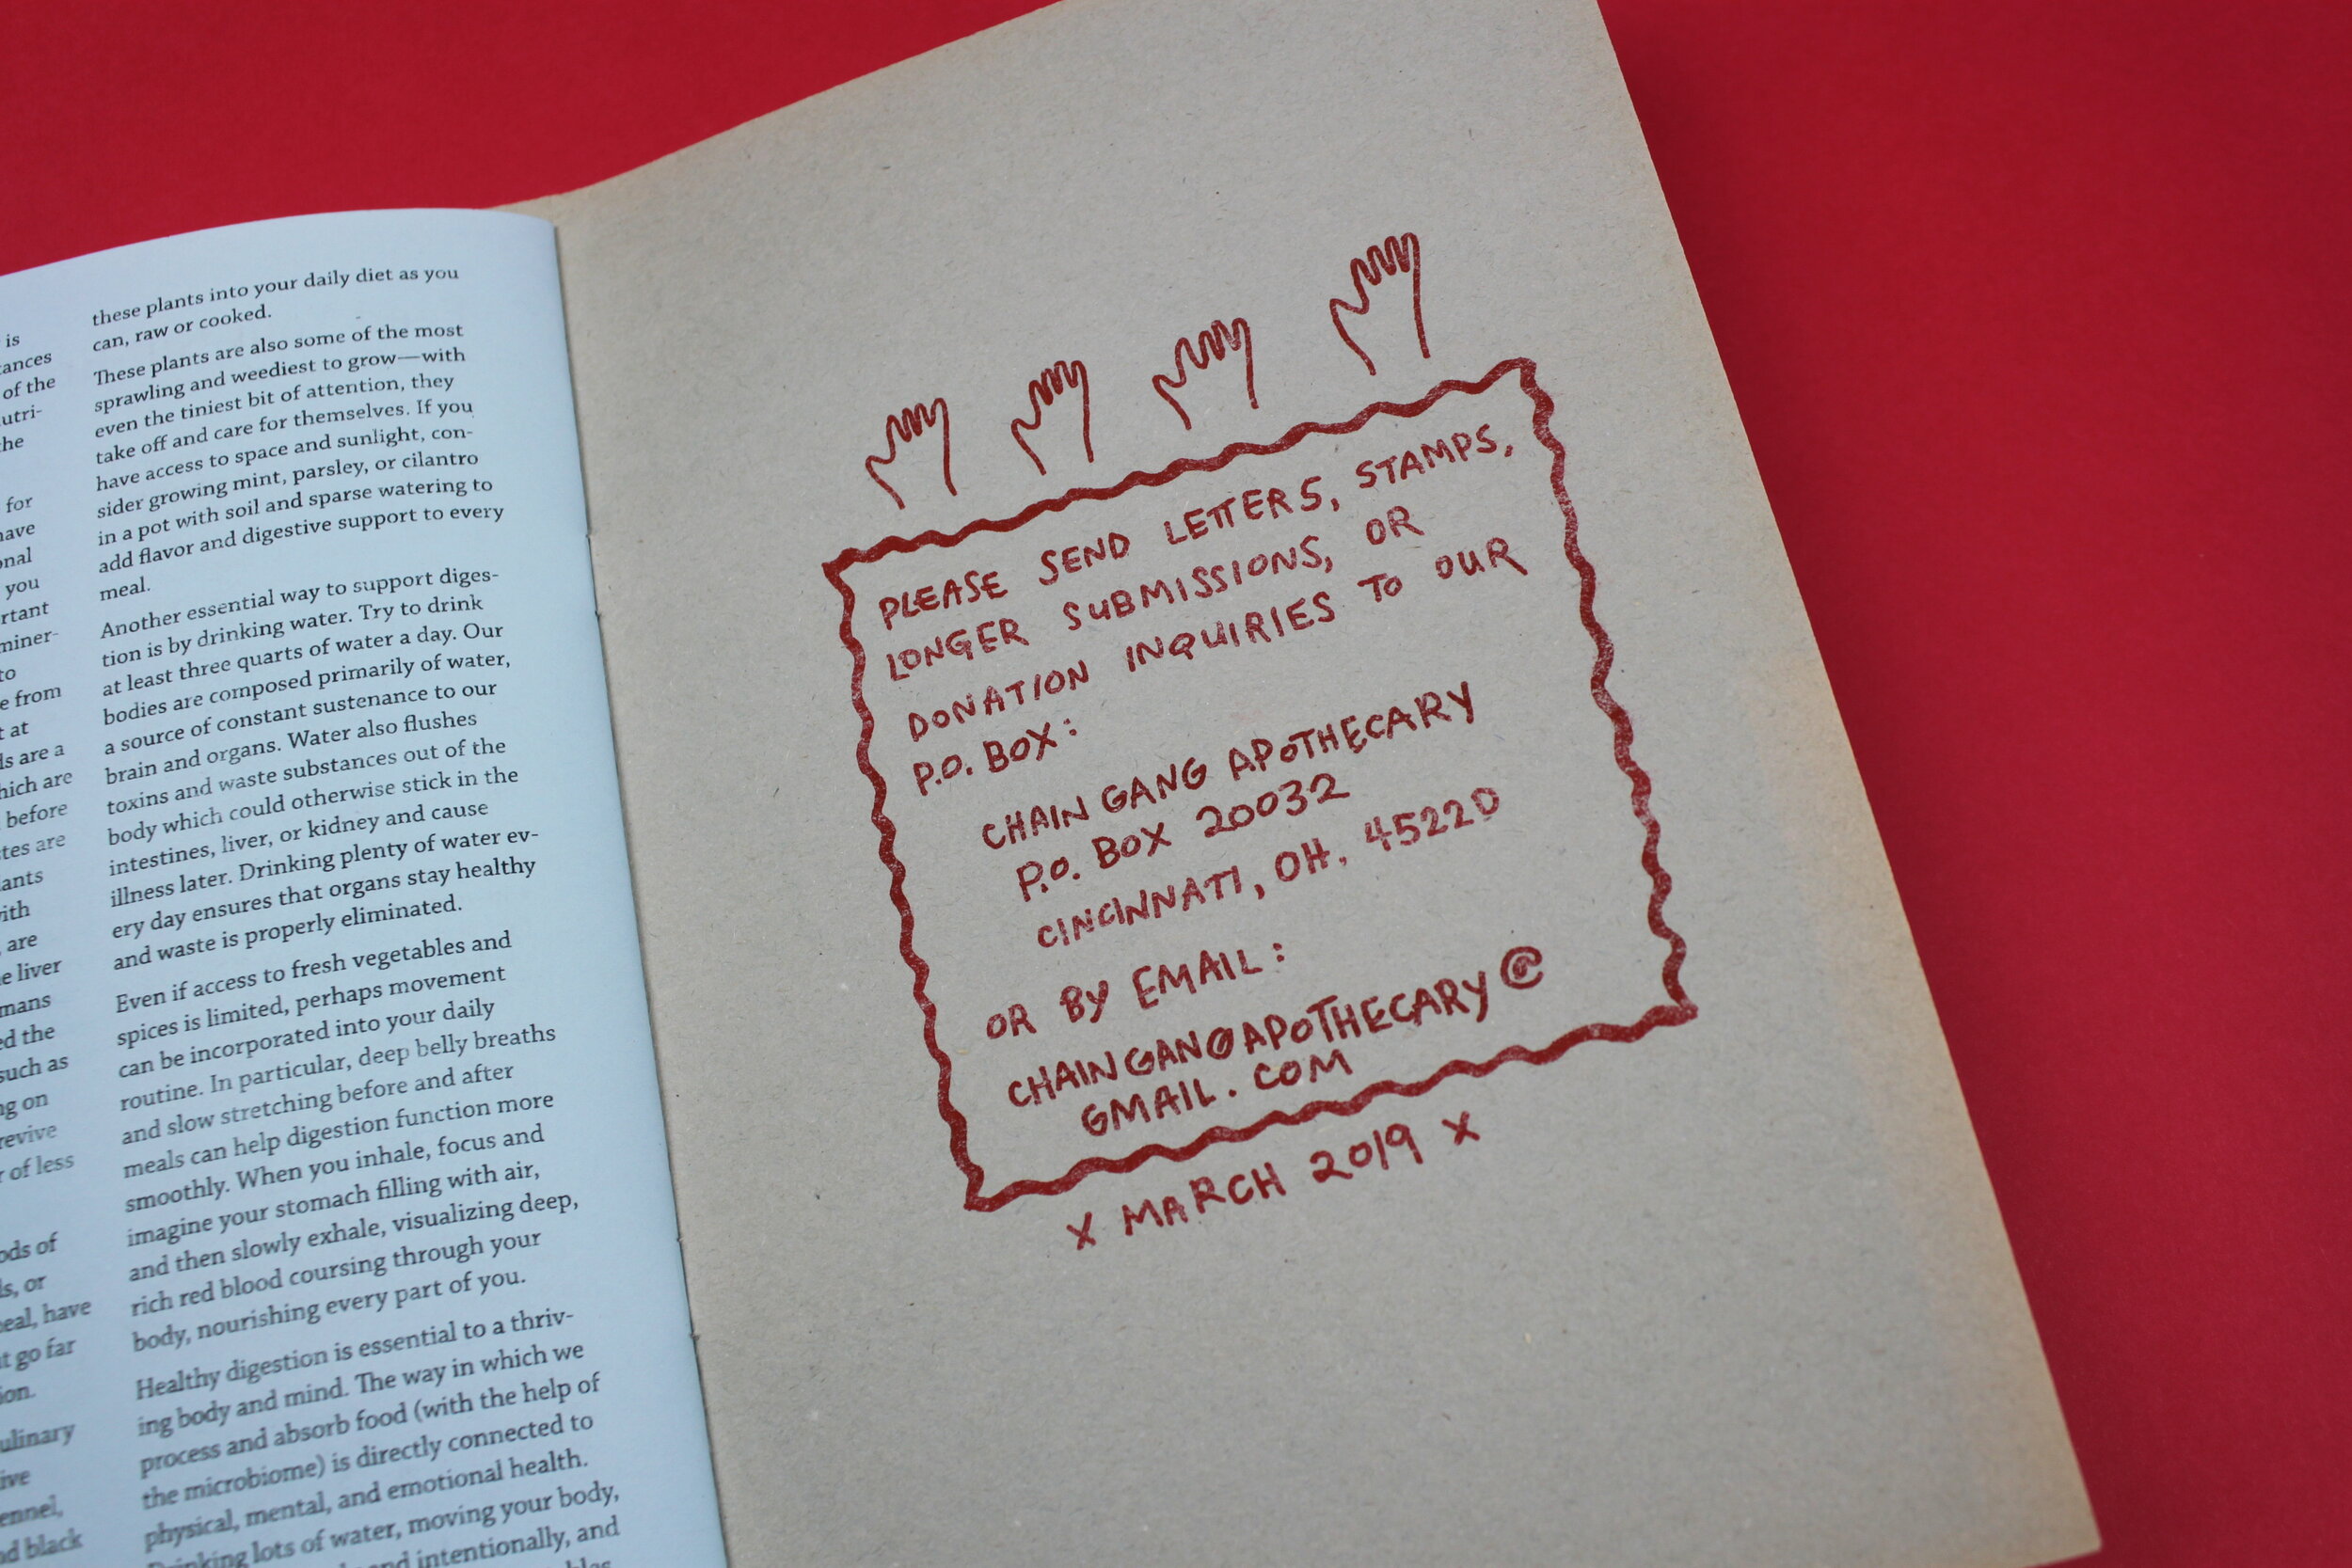 is
tances
of the
utri-
the
for
have
onal
you
rtant
miner-
to
e from
t at
ds are a
hich are
before
tes are
ants
with
, are
e liver
mans
ed the
such as
ng on
revive
r of less
ods of
ls, or
eal, have
t go far
ion.
ulinary
ive
ennel,
nd black
these plants into your daily diet as you
can, raw or cooked.
These plants are also some of the most
sprawling and weediest to grow—with
even the tiniest bit of attention, they
take off and care for themselves. If you
have access to space and sunlight, con-
sider growing mint, parsley, or cilantro
in a pot with soil and sparse watering to
add flavor and digestive support to every
meal.
Another essential way to support diges-
tion is by drinking water. Try to drink
at least three quarts of water a day. Our
bodies are composed primarily of water,
a source of constant sustenance to our
brain and organs. Water also flushes
toxins and waste substances out of the
body which could otherwise stick in the
intestines, liver, or kidney and cause
illness later. Drinking plenty of water ev-
ery day ensures that organs stay healthy
and waste is properly eliminated.
Even if access to fresh vegetables and
spices is limited, perhaps movement
can be incorporated into your daily
routine. In particular, deep belly breaths
and slow stretching before and after
meals can help digestion function more
smoothly. When you inhale, focus and
imagine your stomach filling with air,
and then slowly exhale, visualizing deep,
rich red blood coursing through your
body, nourishing every part of you.
Healthy digestion is essential to a thriv-
ing body and mind. The way in which we
process and absorb food (with the help of
the microbiome) is directly connected to
physical, mental, and emotional health.
Drinking lots of water, moving your body,
and intentionally, and
PLEASE SEND LETTERS, STAMPS,
LONGER SUBMISSIONS, OR
DONATION INQUIRIES TO OUR
P.O. BOX:
CHAIN GANG APOTHECARY
P.O. BOX 20032
CINCINNATI, OH. 45220
OR BY EMAIL:
CHAINGANGAPOTHECARY@
GMAIL.COM
X MARCH 2019 X